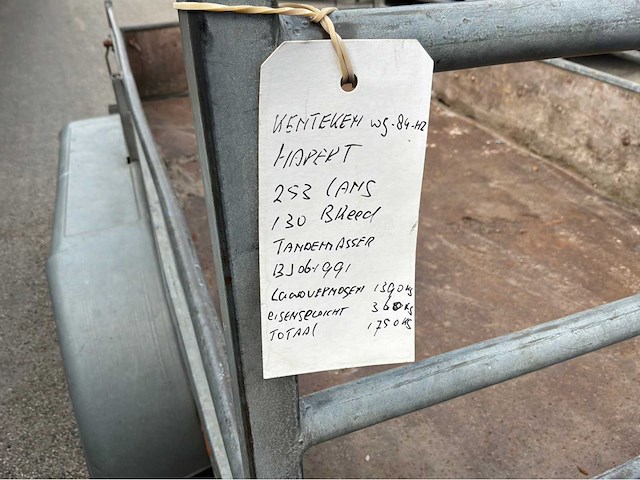 KENTEKEN WG-84-HZ
HAPERT
253 LANG
130 BReed
TANDEMASSER
BJ 06-1991
LAADVERMOGEN 1390 KG
EIGENGEWICHT 360 KG
TOTAAL 1750 KG